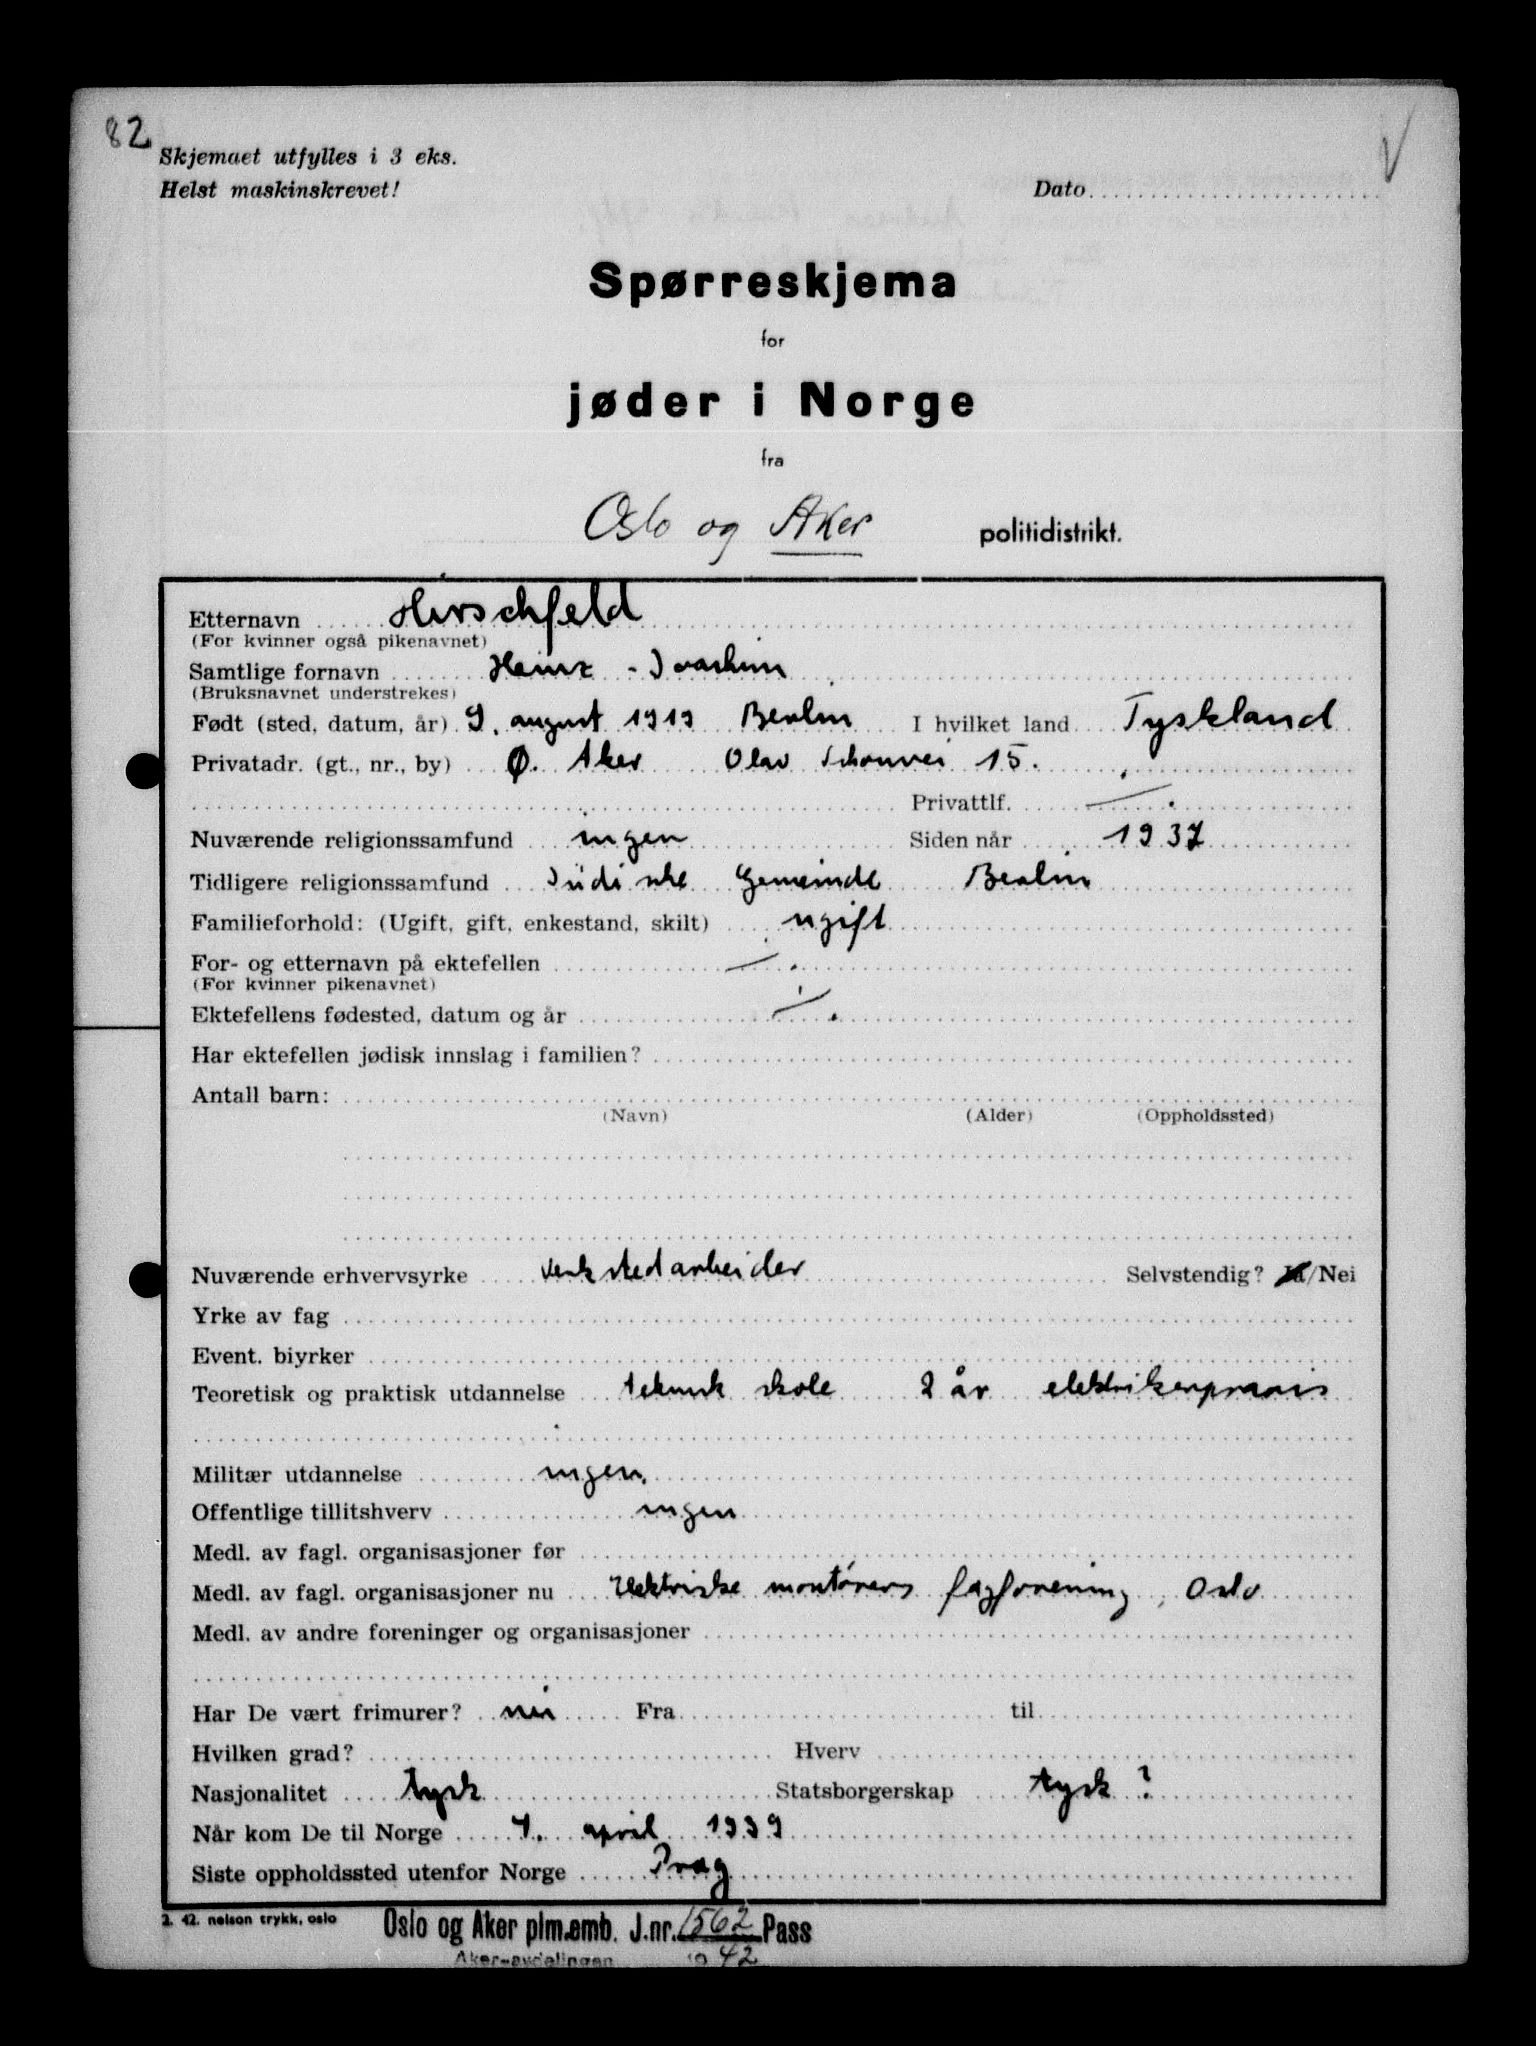 82
Skjemaet utfylles i 3 eks.
Helst maskinskrevet!
Dato
Spørreskjema
for
jøder i Norge
fra
Oslo og Aker politidistrikt.
Etternavn Hirschfeld
(For kvinner også pikenavnet)
Samtlige fornavn Heinz - Joachim
(Bruksnavnet understrekes)
Født (sted, datum, år) 9. august 1919 Berlin I hvilket land Tyskland
Privatadr. (gt., nr., by) Ø. Aker Olav Schouvei 15.
Privattlf.
Nuværende religionssamfund ingen Siden når 1937
Tidligere religionssamfund Jüdische Gemeinde Berlin
Familieforhold: (Ugift, gift, enkestand, skilt) ugift
For- og etternavn på ektefellen
(For kvinner pikenavnet)
Ektefellens fødested, datum og år
Har ektefellen jødisk innslag i familien?
Antall barn:
(Navn) (Alder) (Oppholdssted)
Nuværende erhvervsyrke verkstedarbeider Selvstendig? Ja/Nei
Yrke av fag
Event. biyrker
Teoretisk og praktisk utdannelse teknisk skole 2 år elektrikerpraxis
Militær utdannelse ingen.
Offentlige tillitshverv ingen
Medl. av fagl. organisasjoner før
Medl. av fagl. organisasjoner nu Elektriske montørers fagforening, Oslo
Medl. av andre foreninger og organisasjoner
Har De vært frimurer? nei Fra til
Hvilken grad? Hverv
Nasjonalitet tysk Statsborgerskap tysk ?
Når kom De til Norge 4. april 1939
Siste oppholdssted utenfor Norge Prag
2. 42. nelson trykk, oslo
Oslo og Aker plm.emb. J.nr. 1562 Pass
Aker-avdelingen 1942